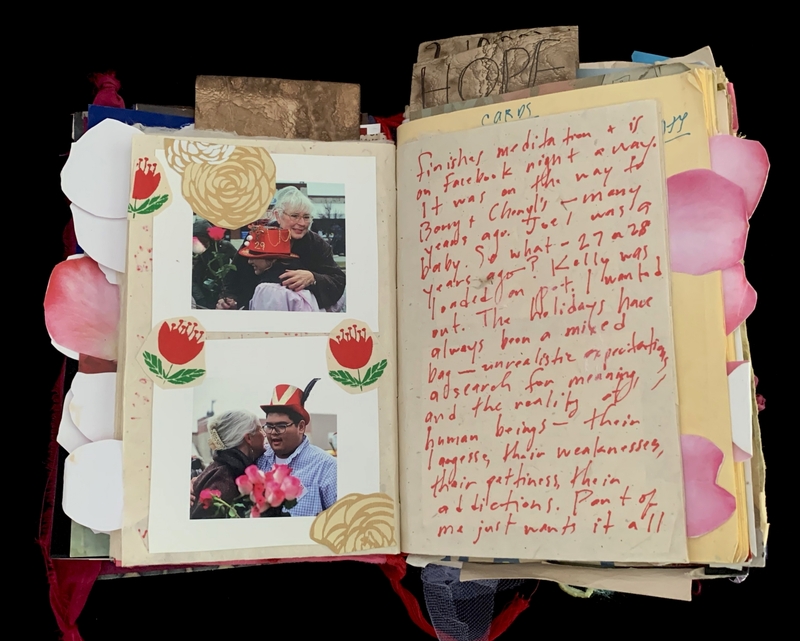 29
HOPE
CARDS
finishes meditation + is
on Facebook night & day.
It was on the way to
Barry & Cheryl's – many
years ago. Joe, I was a
baby. So what – 27 or 28
years ago? Kelly was
loaded on pot. I wanted
out. The holidays have
always been a mixed
bag – unrealistic expectations,
a search for meaning,
and the reality of
human beings – their
largesse, their weaknesses,
their pettiness, their
addictions. Part of
me just wants it all